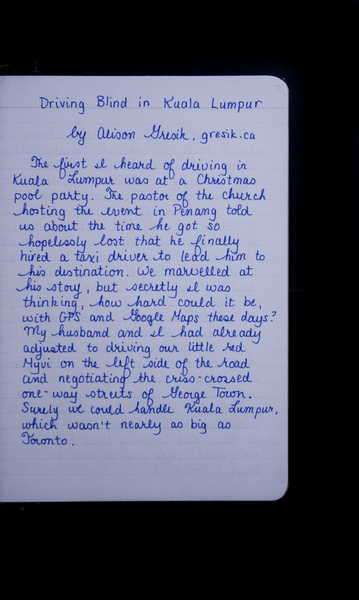 Driving Blind in Kuala Lumpur
by Alison Gresik, gresik.ca
The first I heard of driving in
Kuala Lumpur was at a Christmas
pool party. The pastor of the church
hosting the event in Penang told
us about the time he got so
hopelessly lost that he finally
hired a taxi driver to lead him to
his destination. We marvelled at
his story, but secretly I was
thinking, how hard could it be,
with GPS and Google Maps these days?
My husband and I had already
adjusted to driving our little red
Myvi on the left side of the road
and negotiating the criss-crossed
one-way streets of George Town.
Surely we could handle Kuala Lumpur,
which wasn't nearly as big as
Toronto.